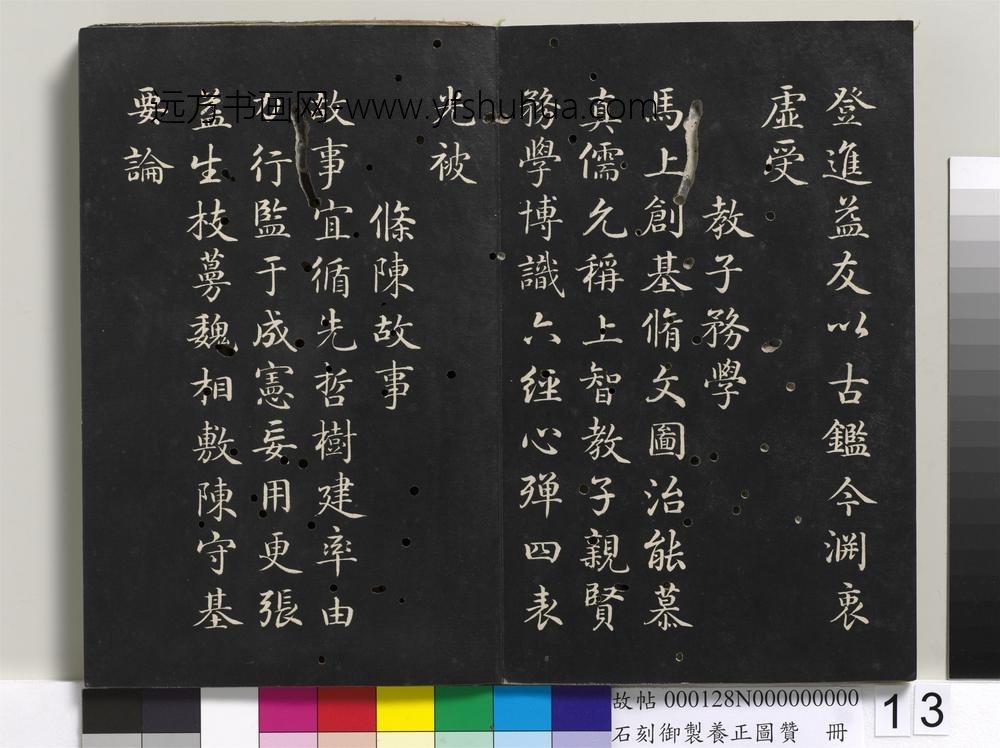 登進益友以古鑑今渊衷
虛受
教子務學
馬上創基脩文圖治能慕
真儒允稱上智教子親賢
務學博識六經心殫四表
光被
條陳故事
故事宜循先哲樹建率由
行監于成憲妄用更張
益生枝蔓魏相敷陳守基
要論
远方书画网-www.yfshuhua.com
故帖 000128N000000000
石刻御製養正圖贊 冊
13